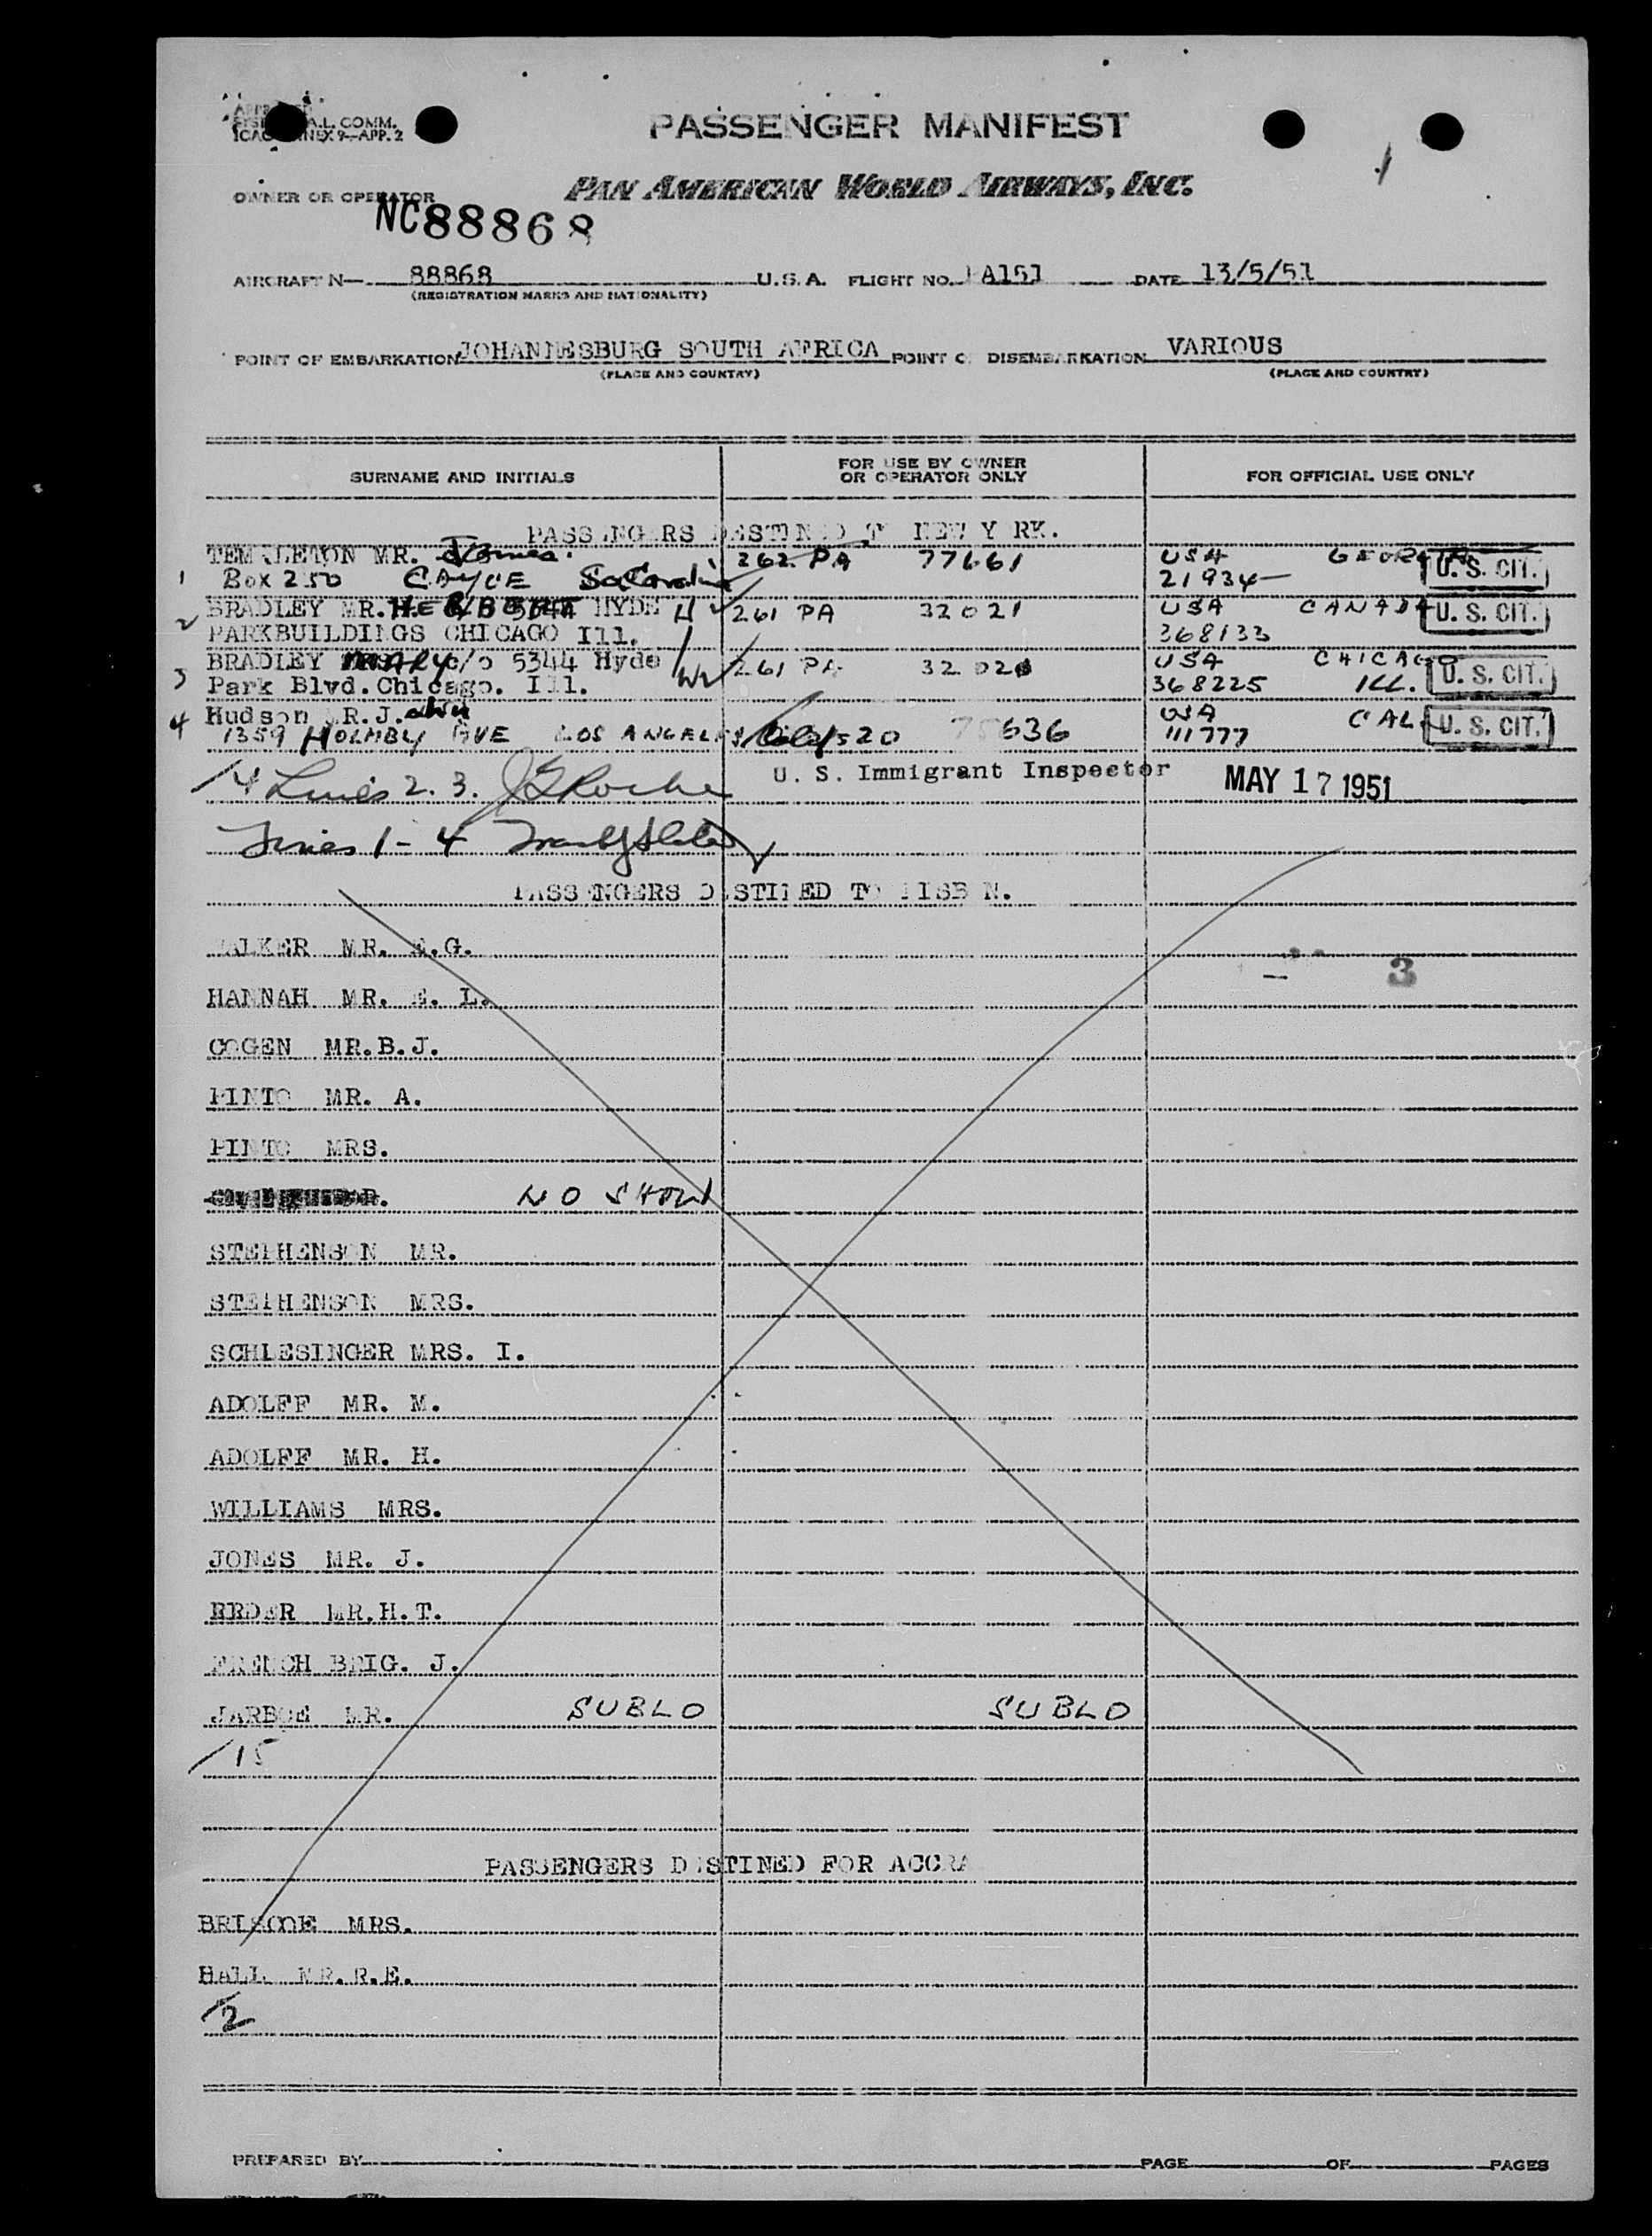 A.L. COMM.
ICAO ANNEX 9—APP. 2
PASSENGER MANIFEST
OWNER OR OPERATOR
PAN AMERICAN WORLD AIRWAYS, INC.
NC88868
AIRCRAFT N— 88868 U.S.A. FLIGHT NO. PA151 DATE 13/5/51
(REGISTRATION MARKS AND NATIONALITY)
POINT OF EMBARKATION JOHANNESBURG SOUTH AFRICA POINT OF DISEMBARKATION VARIOUS
(PLACE AND COUNTRY) (PLACE AND COUNTRY)
SURNAME AND INITIALS FOR USE BY OWNER OR OPERATOR ONLY FOR OFFICIAL USE ONLY
PASSENGERS DESTINED TO NEW YORK.
TEMPLETON MR. James. 262 PA 77661 USA GEORGIA
1 Box 250 CAYCE So Carolina 21934 U. S. CIT.
BRADLEY MR. HERBERT HYDE H 261 PA 32021 USA CANADA U. S. CIT.
2 PARKBUILDINGS CHICAGO Ill. 368133
BRADLEY MARY c/o 5344 Hyde W 261 PA 32020 USA CHICAGO
3 Park Blvd. Chicago. Ill. 368225 ILL. U. S. CIT.
4 Hudson MR.J. USA CAL U. S. CIT.
1359 HOLMBY AVE LOS ANGELES Calif 520 75636 111777
/4 Lines 2. 3. J G Roche U. S. Immigrant Inspector MAY 17 1951
Lines 1 - 4
PASSENGERS DESTINED TO LISBON.
WALKER MR. E.G.
3
HANNAH MR. E. L.
COGEN MR.B.J.
PINTO MR. A.
PINTO MRS.
NO SHOW
STEPHENSON MR.
STEPHENSON MRS.
SCHLESINGER MRS. I.
ADOLFF MR. M.
ADOLFF MR. H.
WILLIAMS MRS.
JONES MR. J.
REDER MR.H.T.
FRENCH BRIG. J.
JARBOE MR. SUBLO SUBLO
/15
PASSENGERS DESTINED FOR ACCRA
BRISCOE MRS.
HALL MR.R.E.
/2
PREPARED BY PAGE OF PAGES